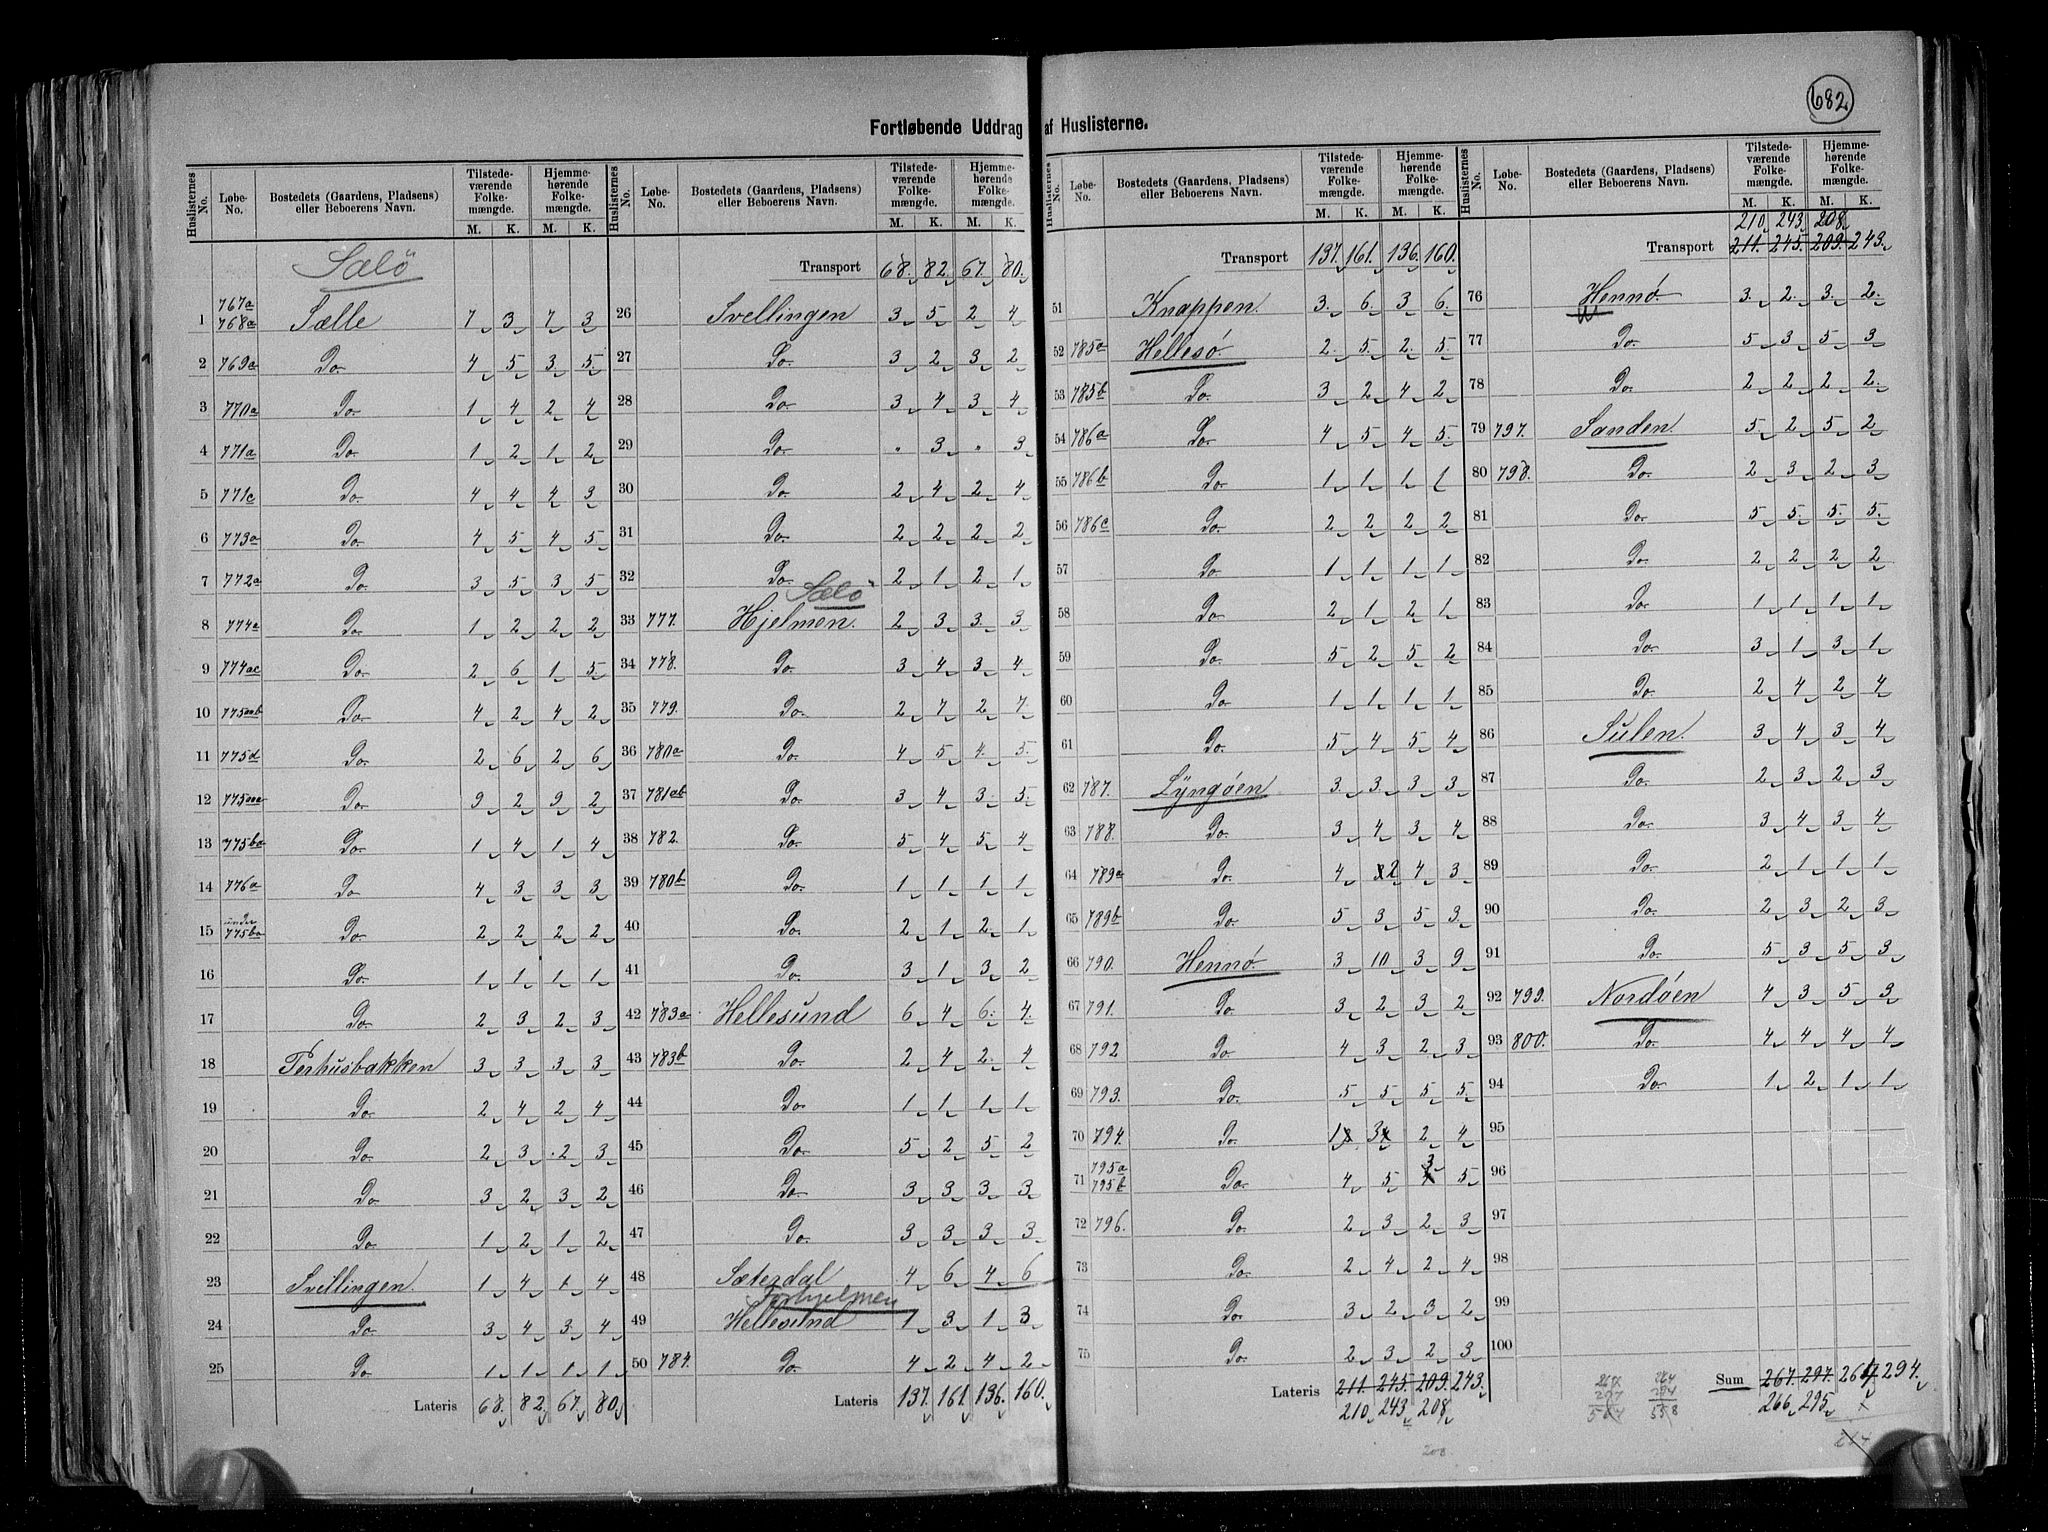 682
Fortløbende Uddrag af Huslisterne.
Huslisternes No. | Løbe-No. | Bostedets (Gaardens, Pladsens) eller Beboerens Navn. | Tilstedeværende Folkemængde. M. K. | Hjemmehørende Folkemængde. M. K.
Sælö
1 767a 768a Sælle 7 3 7 3
2 769a Do. 4 5 3 5
3 770a Do. 1 4 2 4
4 771a Do. 1 2 1 2
5 771c Do. 4 4 4 3
6 773a Do. 4 5 4 5
7 772a Do. 3 5 3 5
8 774a Do. 1 2 2 2
9 774ac Do. 2 6 1 5
10 Do. 4 2 4 2
11 775d Do. 2 6 2 6
12 Do. 9 2 9 2
13 775ba Do. 1 4 1 4
14 776a Do. 4 3 3 3
15 under 775ba Do. 2 2 2 2
16 Do. 1 1 1 1
17 Do. 2 3 2 3
18 Perhusbakken 3 3 3 3
19 Do. 2 4 2 4
20 Do. 2 3 2 3
21 Do. 3 2 3 2
22 Do. 1 2 1 2
23 Svellingen. 1 4 1 4
24 Do. 3 4 3 4
25 Do. 1 1 1 1
Lateris 68. 82 67. 80
Huslisternes No. | Løbe-No. | Bostedets (Gaardens, Pladsens) eller Beboerens Navn. | Tilstedeværende Folkemængde. M. K. | Hjemmehørende Folkemængde. M. K.
Transport 68. 82. 67. 80.
26 Svellingen 3 5 2 4
27 Do. 3 2 3 2
28 Do. 3 4 3 4
29 Do. " 3 " 3
30 Do. 2 4 2 4
31 Do. 2 2 2 2
32 Do. 2 1 2 1
Sælö
33 777. Hjelmen. 2 3 3 3
34 778. Do. 3 4 3 4
35 779. Do. 2 7 2 7
36 780a Do. 4 5 4 5
37 781ab Do. 3 4 3 5
38 782. Do. 5 4 5 4
39 780b Do. 1 1 1 1
40 Do. 2 1 2 1
41 Do. 3 1 3 2
42 783a Hellesund 6 4 6 4
43 783b Do. 2 4 2 4
44 Do. 1 1 1 1
45 Do. 5 2 5 2
46 Do. 3 3 3 3
47 Do. 3 3 3 3
48 Sæterdal 4 6 4 6
Forhjelmen
49 Hellesund 1 3 1 3
50 784. Do. 4 2 4 2
Lateris 137. 161. 136. 160.
Huslisternes No. | Løbe-No. | Bostedets (Gaardens, Pladsens) eller Beboerens Navn. | Tilstedeværende Folkemængde. M. K. | Hjemmehørende Folkemængde. M. K.
Transport 137. 161. 136. 160.
51 Knappen. 3 6 3 6
52 785a Hellesö. 2 5 2 5
53 785b Do. 3 2 4 2
54 786a Do. 4 5 4 5
55 786b Do. 1 1 1 1
56 786c Do. 2 2 2 2
57 Do. 1 1 1 1
58 Do. 2 1 2 1
59 Do. 5 2 5 2
60 Do. 1 1 1 1
61 Do. 5 4 5 4
62 787. Lyngøen 3 3 3 3
63 788. Do. 3 4 3 4
64 789a Do. 4 2 4 3
65 789b Do. 5 3 5 3
66 790. Hennø. 3 10 3 9
67 791. Do. 3 2 3 2
68 792 Do. 4 3 2 3
69 793. Do. 5 5 5 5
70 794. Do. 1 3 2 4
71 795a 795b Do. 4 5 3 5
72 796. Do. 2 3 2 3
73 Do. 2 4 2 4
74 Do. 3 2 3 2
75 Do. 2 3 2 3
Lateris 211. 245. 209. 243.
210 243 208
208
Huslisternes No. | Løbe-No. | Bostedets (Gaardens, Pladsens) eller Beboerens Navn. | Tilstedeværende Folkemængde. M. K. | Hjemmehørende Folkemængde. M. K.
210 243 208
Transport 211. 245. 209. 243.
76 Hennø. 3 2 3 2
77 Do. 5 3 5 3
78 Do. 2 2 2 2
79 797. Sanden. 5 2 5 2
80 798. Do. 2 3 2 3
81 Do. 5 5 5 5
82 Do. 2 2 2 2
83 Do. 1 1 1 1
84 Do. 3 1 3 1
85 Do. 2 4 2 4
86 Sulen. 3 4 3 4
87 Do. 2 3 2 3
88 Do. 3 4 3 4
89 Do. 2 1 1 1
90 Do. 2 3 2 3
91 Do. 5 3 5 3
92 799. Nordøen 4 3 5 3
93 800. Do. 4 4 4 4
94 Do. 1 2 1 1
95
96
97
98
99
100
Sum 267. 297. 294.
266 295
267 264
297 294
564 558
264